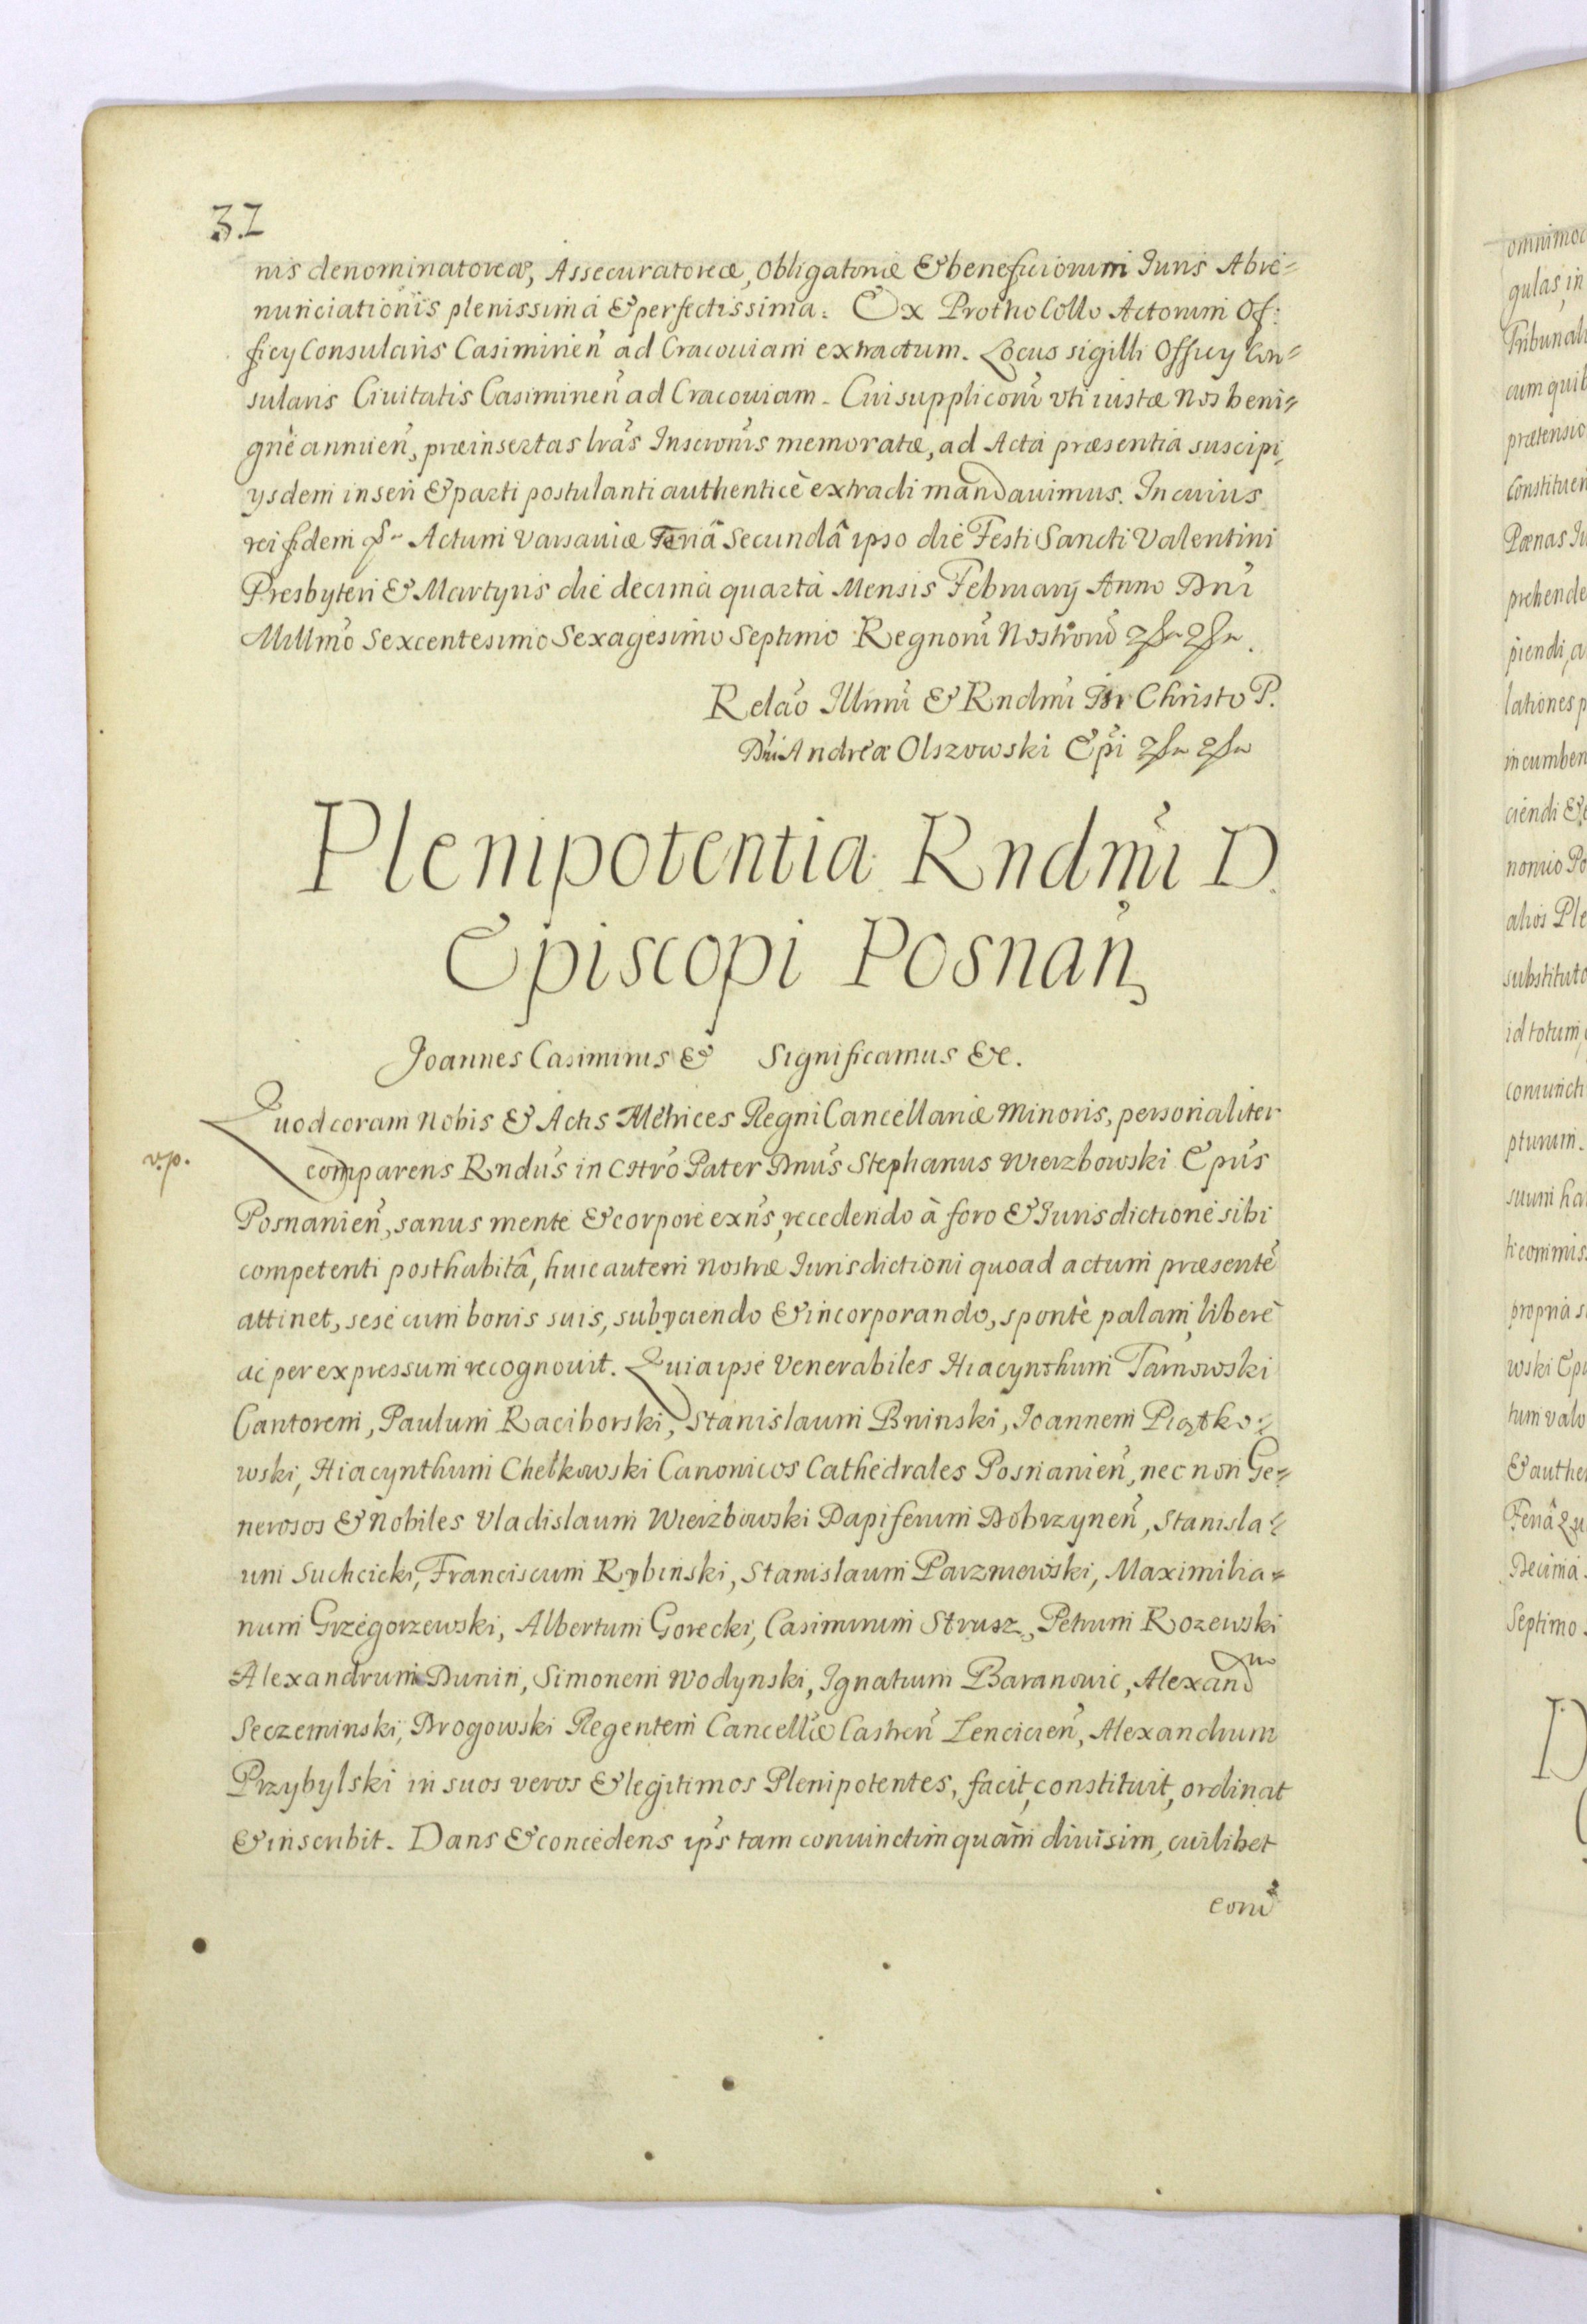 32
nis denominatoreæ, Assecuratoreæ, Obligatoriæ & beneficiorum Juris Abre=
nunciationis plenissima & perfectissima. Ex Prothocollo Actorum Of:
ficij Consularis Casimirien̄ ad Cracouiam extractum. Locus sigilli Officij Con=
sularis Ciuitatis Casimirien̄ ad Cracouiam. Cui supplicōni vti iustæ Nos beni=
gnè annuen̄, præinsertas lrās Inscrōnis memoratæ, ad Acta præsentia suscipi,
ysdem inseri & parti postulanti authenticè extradi mandauimus. In cuius
rei fidem &c. Actum Varsauiæ Feriâ Secundâ ipso die Festi Sancti Valentini
Presbyteri & Martyris die decima quarta Mensis February Anno Dn̄i
Millmō Sexcentesimo Sexagesimo Septimo Regnorū Nostrorū &c &c.
Relāo Illmi & Rndmi in Christo P.
Dn̄i Andreæ Olszowski Ep̄i &c &c
Plenipotentia Rndmi D.
Episcopi Posnan̄
Joannes Casimirus & Significamus &c.
Quod coram Nobis & Actis Metrices Regni Cancellariæ Minoris, personaliter
v.p.
comparens Rndus in Chrō Pater Dnūs Stephanus Wierzbowski Epūs
Posnanien̄, sanus mente & corpore exn̄s, recedendo à foro & Iurisdictione sibi
competenti posthabitâ, huic autem nostræ Iurisdictioni quoad actum præsentē
attinet, sese cum bonis suis, subyciendo & incorporando, spontè palam, liberè
ac per expressum recognouit. Quia ipse Venerabiles Hiacynthum Tarnowski
Cantorem, Paulum Raciborski, Stanislaum Bninski, Ioannem Piątko=
wski, Hiacynthum Chełkowski Canonicos Cathedrales Posnanien̄, nec non Ge=
nerosos & Nobiles Vladislaum Wierzbowski Dapiferum Dobrzynen̄, Stanisla=
um Suchcicki, Franciscum Rybinski, Stanislaum Parzniewski, Maximilia=
num Grzegorzewski, Albertum Gorecki, Casimirum Strusz, Petrum Rozewski
Alexandrum Dunin, Simonem Wodynski, Ignatium Baranowic, Alexand
Seczeminski, Drogowski Regentem Cancellæ Castren̄ Lencicien̄, Alexandrum
Przybylski in suos veros & legitimos Plenipotentes, facit, constituit, ordinat
& inscribit. Dans & concedens ip̄s tam coniunctim quam diuisim, cuilibet
eorū